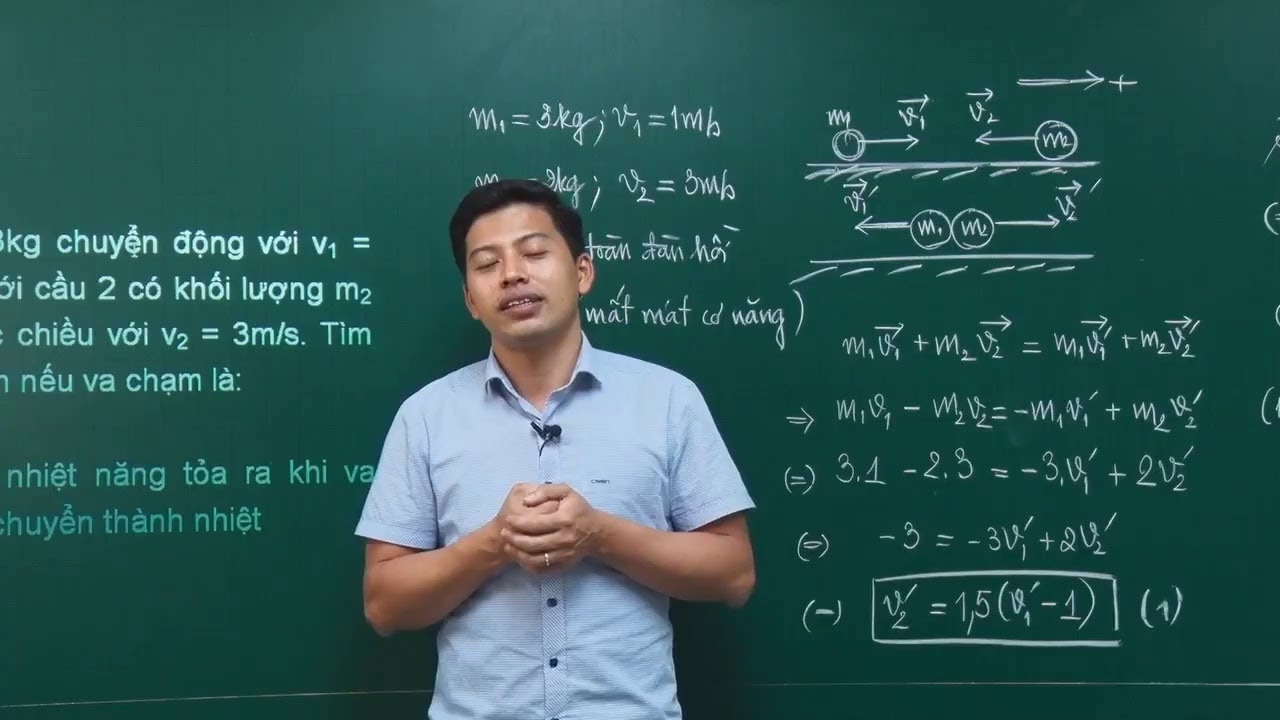 3kg chuyện động với v₁ =
ới cầu 2 có khối lượng m₂
c chiều với v₂ = 3m/s. Tìm
n nếu va chạm là:
nhiệt năng tỏa ra khi va
chuyển thành nhiệt
m₁ = 3kg ; v₁ = 1m/s
m = 2kg ; v₂ = 3m/s
toàn đàn hồi
mất mát cơ năng)
+
m₁ v₁→ v₂→ m₂
v₁′→ m₁ m₂ v₂′→
m₁v₁→ + m₂v₂→ = m₁v₁′→ + m₂v₂′→
⇒ m₁v₁ - m₂v₂ = -m₁v₁′ + m₂v₂′
(=) 3.1 - 2.3 = -3.v₁′ + 2v₂′
(=) -3 = -3v₁′ + 2v₂′
(=) v₂′ = 1,5(v₁′ - 1) (1)
OWEN